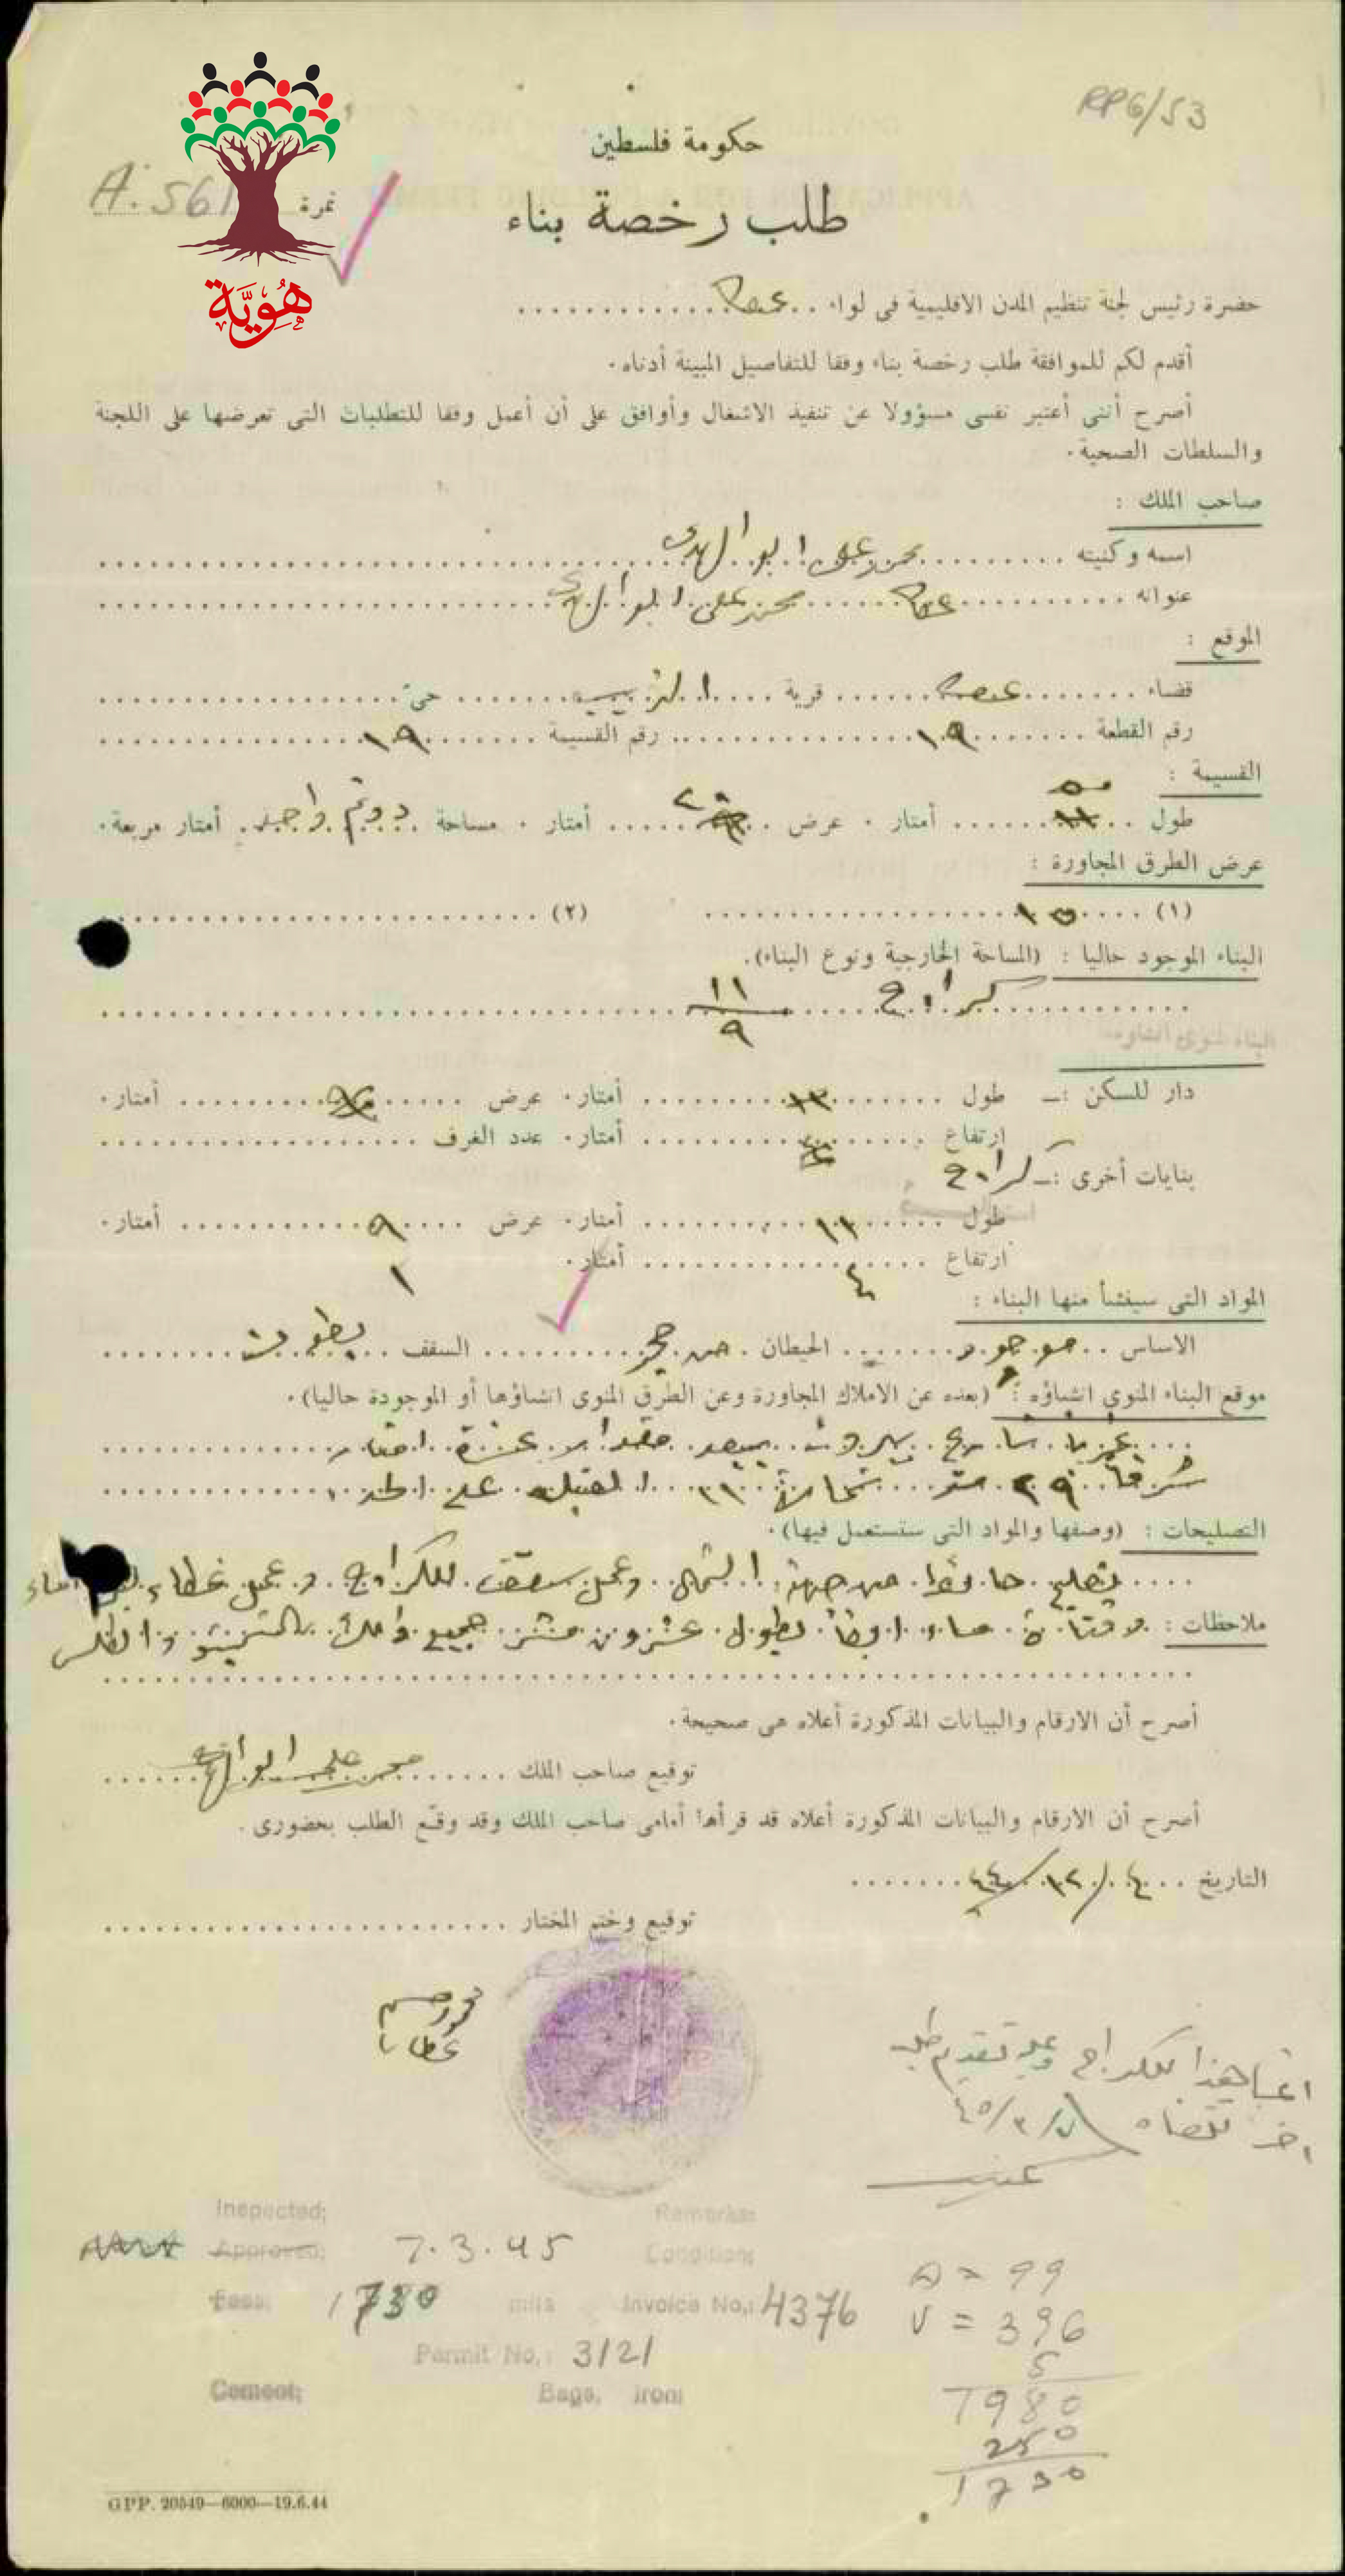 RP6/53
حكومة فلسطين
نمرة A.561
طلب رخصة بناء
هُوِيَّة
حضرة رئيس لجنة تنظيم المدن الاقليمية في لواء عكا
أقدم لكم للموافقة طلب رخصة بناء وفقا للتفاصيل المبينة أدناه.
أصرح أنني أعتبر نفسي مسؤولا عن تنفيذ الاشغال وأوافق على أن أعمل وفقا للتطلبات التي تعرضها على اللجنة
والسلطات الصحية.
صاحب الملك :
اسمه وكنيته محمد علي ابو الهدى
عنوانه عكا محمد علي ابو الهدى
الموقع :
قضاء عكا قرية الزيب حي
رقم القطعة ١٩ رقم القسيمة ١٩
القسيمة :
طول ٥٠ أمتار . عرض أمتار . مساحة دونم واحد أمتار مربعة.
عرض الطرق المجاورة :
(١) ١٥ (٢)
البناء الموجود حاليا : (المساحة الخارجية ونوع البناء).
كراج ١١/٩
البناء المنوي انشاؤه
دار للسكن :ـ طول أمتار. عرض أمتار.
ارتفاع أمتار. عدد الغرف
بنايات أخرى :ـ كراج
طول ١١ أمتار. عرض ٩ أمتار.
ارتفاع ٤ أمتار.
المواد التي سينشأ منها البناء :
الاساس موجود الحيطان من حجر السقف بطون
موقع البناء المنوي انشاؤه : (بعده عن الاملاك المجاورة وعن الطرق المنوي انشاؤها أو الموجودة حاليا).
غربا شارع بيروت يبعد مقدار عشرة امتار
شرقا ٢٩ متر شمالا ٣١ القبله على الحد
التصليحات : (وصفها والمواد التي ستستعمل فيها).
تصليح حائط من جهة الشمال وعمل سقف للكراج وعمل غطاء
ملاحظات : وقناة ماء ايضا بطول عشرون متر جميع ذلك بالشمينتو والكلس
أصرح أن الارقام والبيانات المذكورة أعلاه هي صحيحة.
توقيع صاحب الملك محمد علي ابو الهدى
أصرح أن الارقام والبيانات المذكورة أعلاه قد قرأها أمامي صاحب الملك وقد وقّع الطلب بحضوري.
التاريخ ٤/١٢/٤٤
توقيع وختم المختار
عطايا
هذا للكراج وعليه تقديم طلب
٧/٣/٤٥
Inspected; Remarks:
Approved; 7.3.45 Condition;
Fees; 1730 mils Invoice No,: 4376
Permit No,: 3121
Cement; Bags, Iron;
A = 99
V = 396
5
1980
250
1730
GPP. 20549—6000—19.6.44